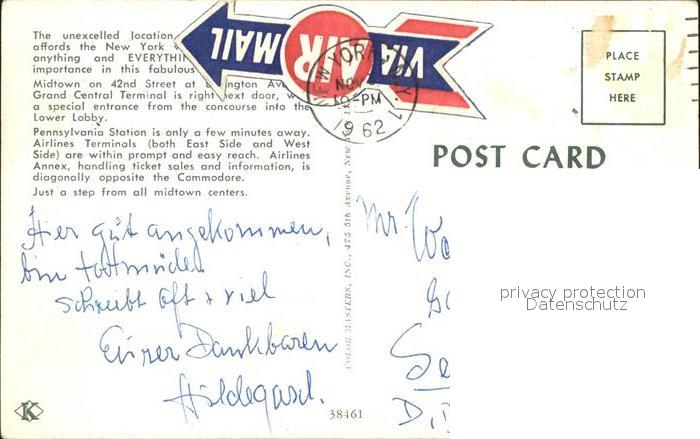 The unexcelled location
affords the New York
anything and EVERYTHIN
importance in this fabulous
Midtown on 42nd Street at ington Av
Grand Central Terminal is right next door, w
a special entrance from the concourse into the
Lower Lobby.
Pennsylvania Station is only a few minutes away.
Airlines Terminals (both East Side and West
Side) are within prompt and easy reach. Airlines
Annex, handling ticket sales and information, is
diagonally opposite the Commodore.
Just a step from all midtown centers.
VIA AIR MAIL
NEW YORK, N.Y. 1
NOV
PM
1962
PLACE
STAMP
HERE
POST CARD
Hier gut angekommen,
bin todmüde
schreibt oft + viel
Eurer Dankbaren
Hildegard.
COLOR MASTERS, INC., 475 5th Avenue, New
Mr.
privacy protection
Datenschutz
K
38461